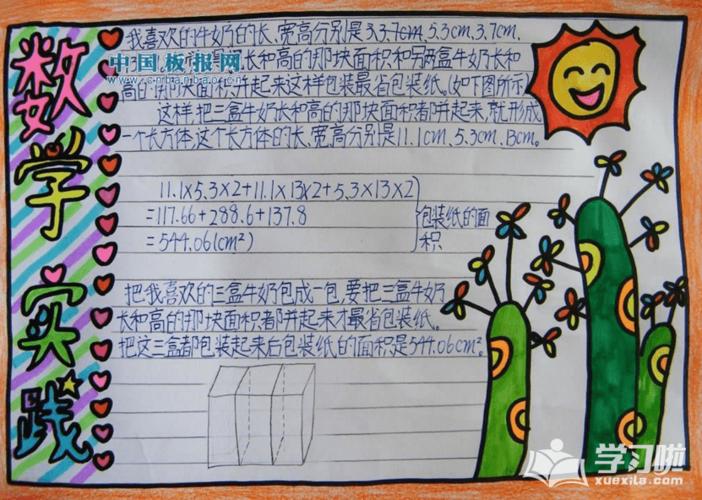 数学实践
我喜欢的牛奶的长、宽高分别是3.3.7cm、5.3cm、3.7cm、
中国板报网
长和高的那块面积和另两盒牛奶长和
www.cnbanbao.com
高的那块面积并起来这样包装最省包装纸。(如下图所示)
这样,把三盒牛奶长和高的那块面积都并起来,就形成
一个长方体,这个长方体的长、宽高分别是11.1cm、5.3cm、13cm。
11.1×5.3×2+11.1×13×2+5.3×13×2
=117.66+288.6+137.8
=544.06(cm²)
包装纸的面
积
把我喜欢的三盒牛奶包成一包,要把三盒牛奶
长和高的那块面积都并起来才最省包装纸。
把这三盒都包装起来后包装纸的面积是544.06cm²。
学习啦
xuexila.com